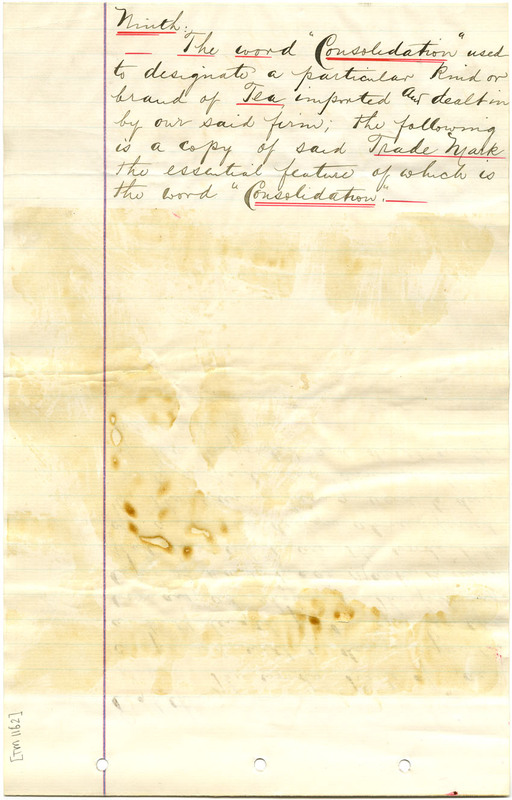 Ninth:
— The word "Consolidation" used
to designate a particular kind or
brand of Tea, imported and dealt in
by our said firm; the following
is a copy of said Trade Mark
the essential feature of which is
the word "Consolidation."—
[TM 1162]